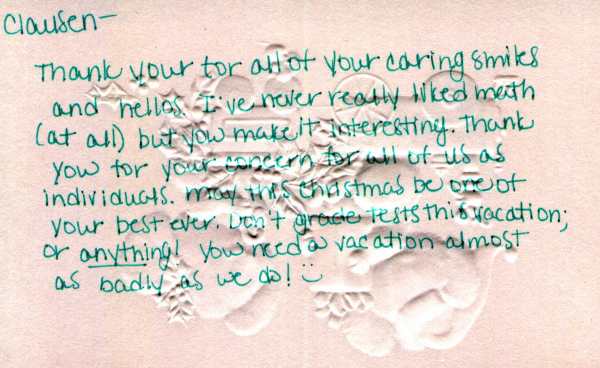 Clausen-
Thank your for all of your caring smiles
and hellos. I've never really liked math
(at all) but you make it interesting. Thank
you for your concern for all of us as
individuals. May this christmas be one of
your best ever. Don't grade tests this vacation;
or anything! You need a vacation almost
as badly as we do! ☺